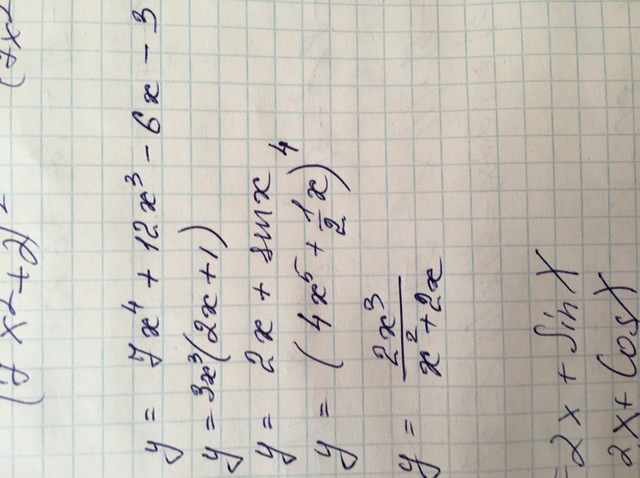 (7x²+2)²
(7x²
y = 7x⁴ + 12x³ - 6x - 3
y = 3x³(2x+1)
y = 2x + sin x
y = (4x⁵ + 1/2 x)⁴
y = 2x³/(x²+2x)
=2x + Sin X
2x + Cos X